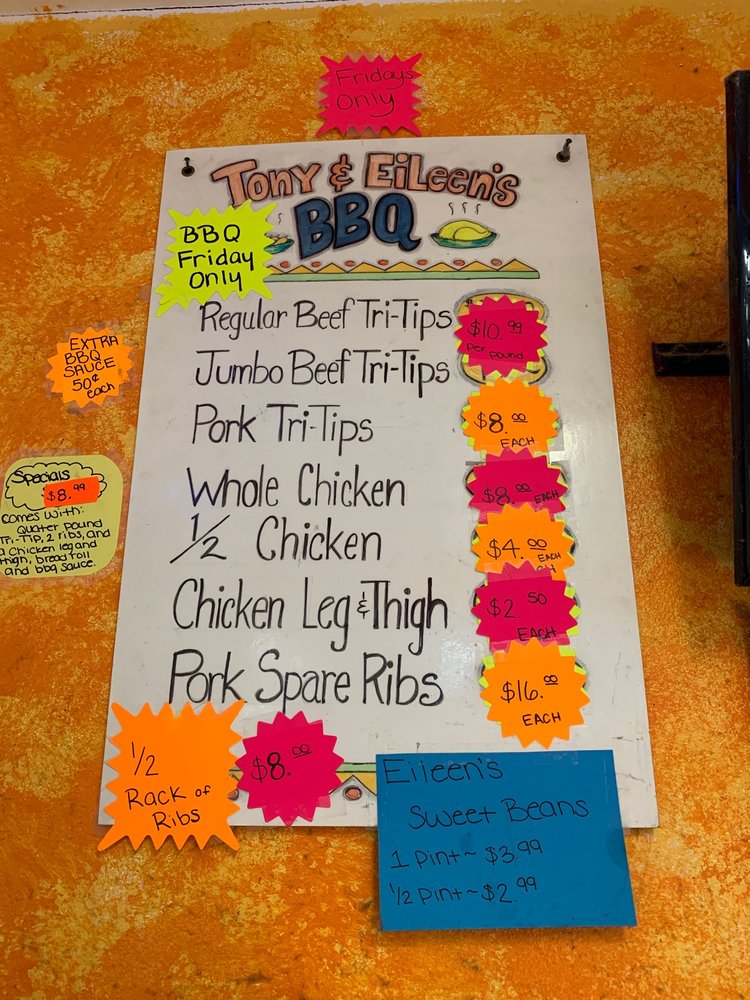 Fridays
Only
Tony & Eileen's
BBQ
BBQ
Friday
Only
Regular Beef Tri-Tips
$10.99
per pound
Jumbo Beef Tri-Tips
Pork Tri-Tips
$8.00
EACH
Whole Chicken
$8.00 EACH
1/2 Chicken
$4.00 EACH
Chicken Leg & Thigh
$2.50
EACH
Pork Spare Ribs
$16.00
EACH
EXTRA
BBQ
SAUCE
50¢
each
Specials
$8.99
Comes With:
Quater Pound
Tri-Tip, 2 ribs, and
a Chicken leg and
thigh, bread roll
and bbq sauce.
1/2
Rack of
Ribs
$8.00
Eileen's
Sweet Beans
1 Pint~ $3.99
1/2 Pint~ $2.99